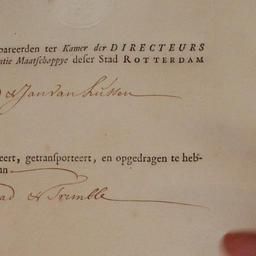 pareerden ter Kamer der DIRECTEURS
ntie Maatschappye deser Stad ROTTERDAM
& Jan van
eert, getransporteert, en opgedragen te heb-
an
ad & Trimble